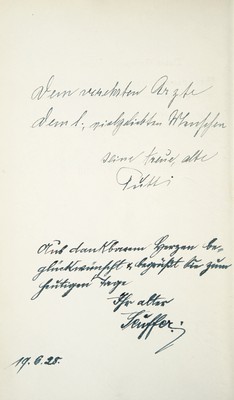 Dem verehrten Arzte
dem l., vielgeliebten Menschen
seine treue alte
Putti
Aus dankbarem Herzen be-
glückwünscht & begrüßt Sie zum
heutigen Tage
Ihr alter
19.6.28.